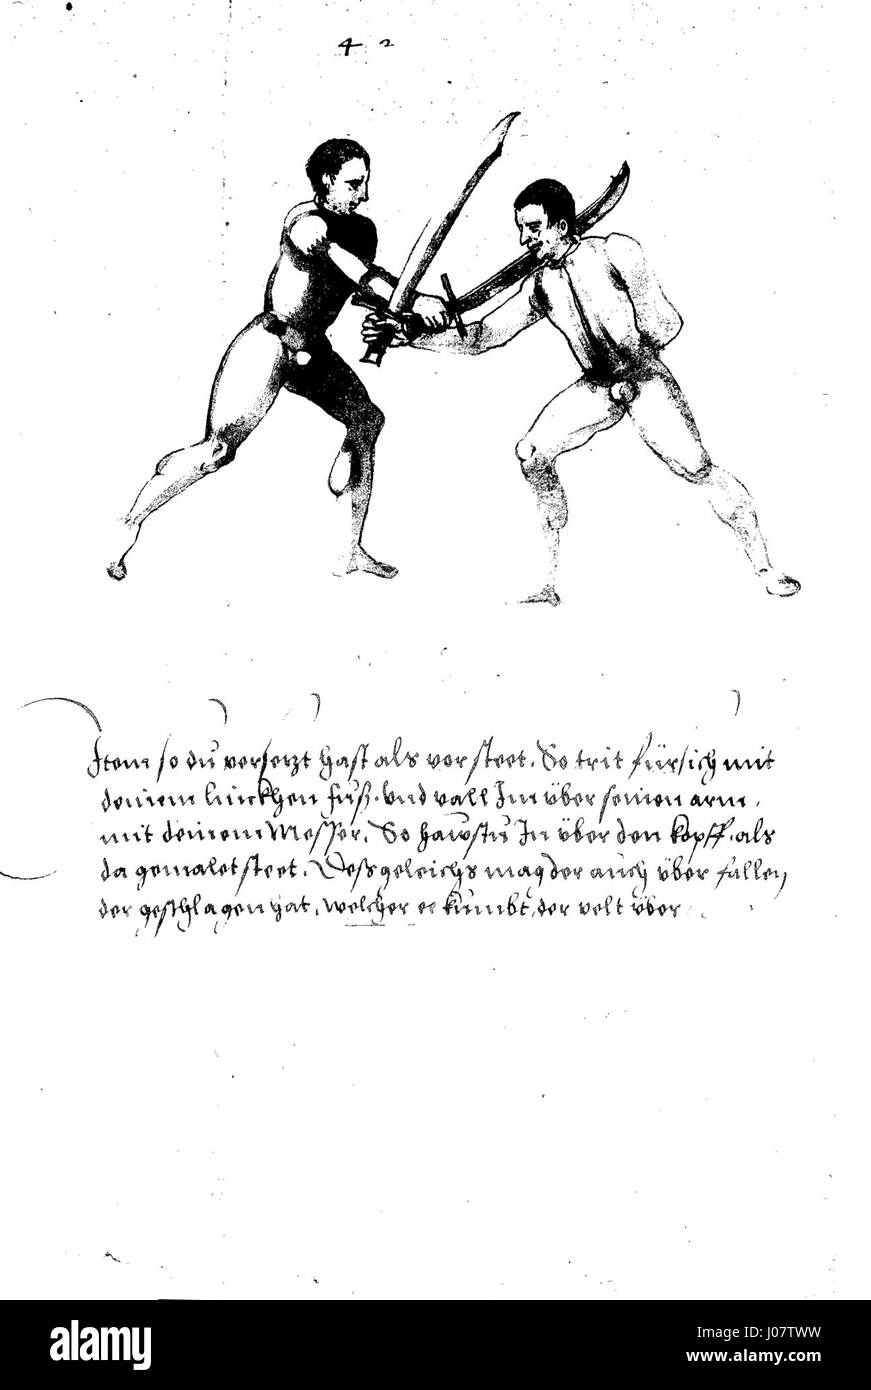 42
Item so du versetzt hast als vor steet. So trit fürsich mit
deinem linckhen fuß. und vall Im über seinen arm.
mit deinem Messer. So hawstu In über den kopff. als
da gemalet steet. Deßgeleichs mag der auch über fallen
der geschlagen hat. welcher es kumbt, der velt über
alamy
Image ID: J07TWW
www.alamy.com